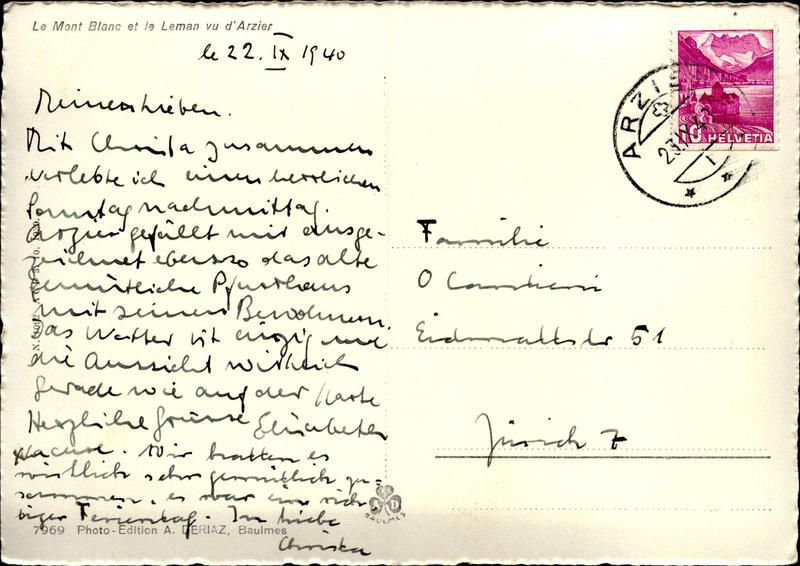 Le Mont Blanc et le Leman vu d'Arzier
le 22. IX 1940
Meine Lieben.
Mit Christa zusammen
verlebte ich einen herrlichen
Sonntagnachmittag.
Arzier gefällt mir ausge-
zeichnet ebenso das alte
gemütliche Pfarrhaus
mit seinen Bewohnern.
Das Wetter ist einzig und
die Aussicht wirklich
gerade wie auf der Karte
Herzliche Grüsse Elisabeth
Wir hatten es
wirklich sehr gemütlich zu-
sammen, es war ein rich-
tiger Ferientag. In Liebe
Christa
7969 Photo-Edition A. DERIAZ, Baulmes
A D
BAULMES
HELVETIA
10
ARZIER
23.IX.40
Familie
Eidmattstr 51
Zürich 7